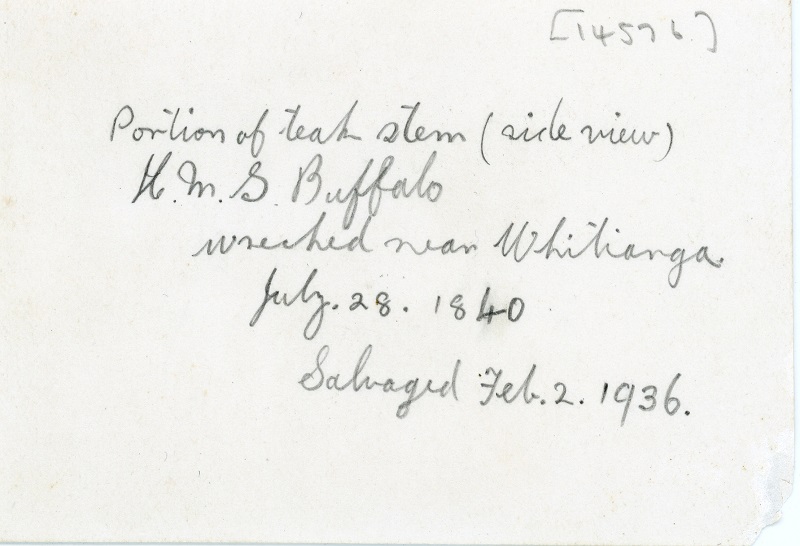 [14576]
Portion of teak stem (side view)
H.M.S. Buffalo
wrecked near Whitianga.
July. 28. 1840
Salvaged Feb. 2. 1936.